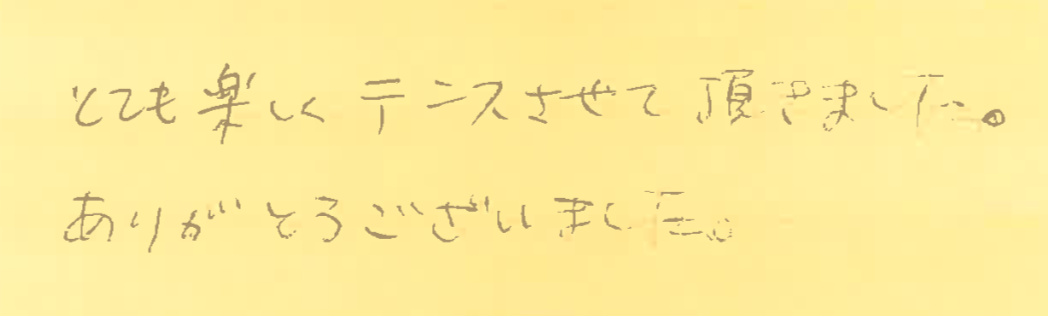 とても楽しくテニスさせて頂きました。
ありがとうございました。